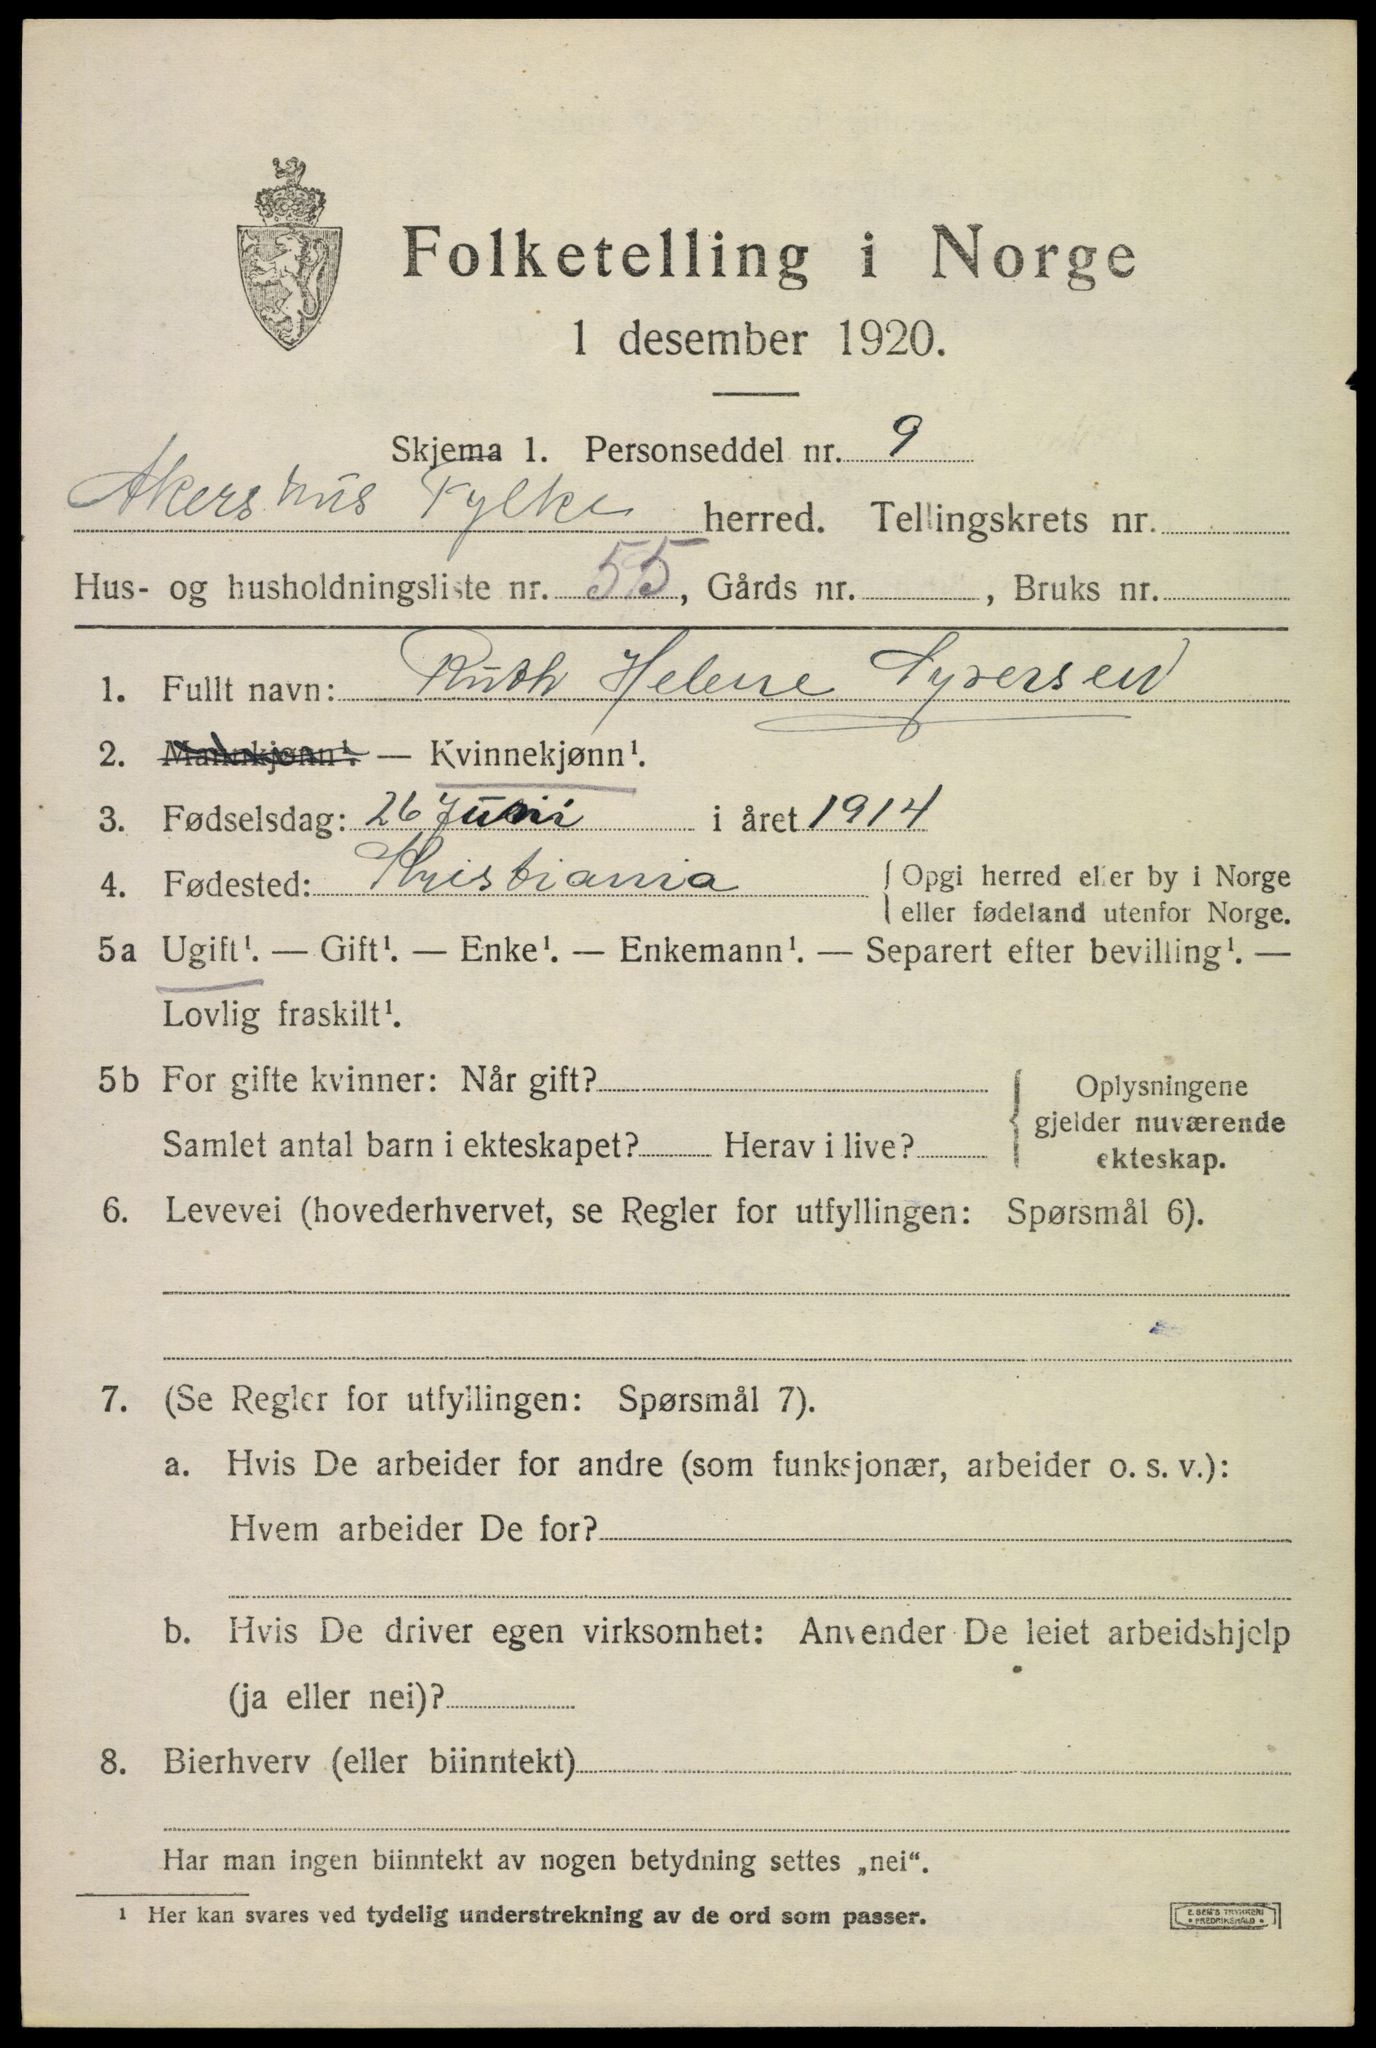 Folketelling i Norge
1 desember 1920.
Skjema 1. Personseddel nr. 9
Akershus Fylke herred. Tellingskrets nr.
Hus- og husholdningsliste nr. 55, Gårds nr. , Bruks nr.
1. Fullt navn: Ruth Helene Syversen
2. Mannkjønn¹. — Kvinnekjønn¹.
3. Fødselsdag: 26 Juni i året 1914
4. Fødested: Kristiania { Opgi herred eller by i Norge
eller fødeland utenfor Norge.
5a Ugift¹. — Gift¹. — Enke¹. — Enkemann¹. — Separert efter bevilling¹. —
Lovlig fraskilt¹.
5b For gifte kvinner: Når gift?
Samlet antal barn i ekteskapet? Herav i live?
{ Oplysningene
gjelder nuværende
ekteskap.
6. Levevei (hovederhvervet, se Regler for utfyllingen: Spørsmål 6).
7. (Se Regler for utfyllingen: Spørsmål 7).
a. Hvis De arbeider for andre (som funksjonær, arbeider o. s. v.):
Hvem arbeider De for?
b. Hvis De driver egen virksomhet: Anvender De leiet arbeidshjelp
(ja eller nei)?
8. Bierhverv (eller biinntekt)
Har man ingen biinntekt av nogen betydning settes „nei“.
¹ Her kan svares ved tydelig understrekning av de ord som passer.
E. SEM'S TRYKKERI
• FREDRIKSHALD •